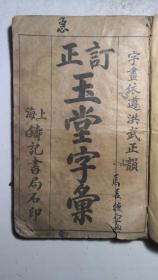 字畫依遵洪武正韻
訂正
玉堂字彙
上海鑄記書局石印